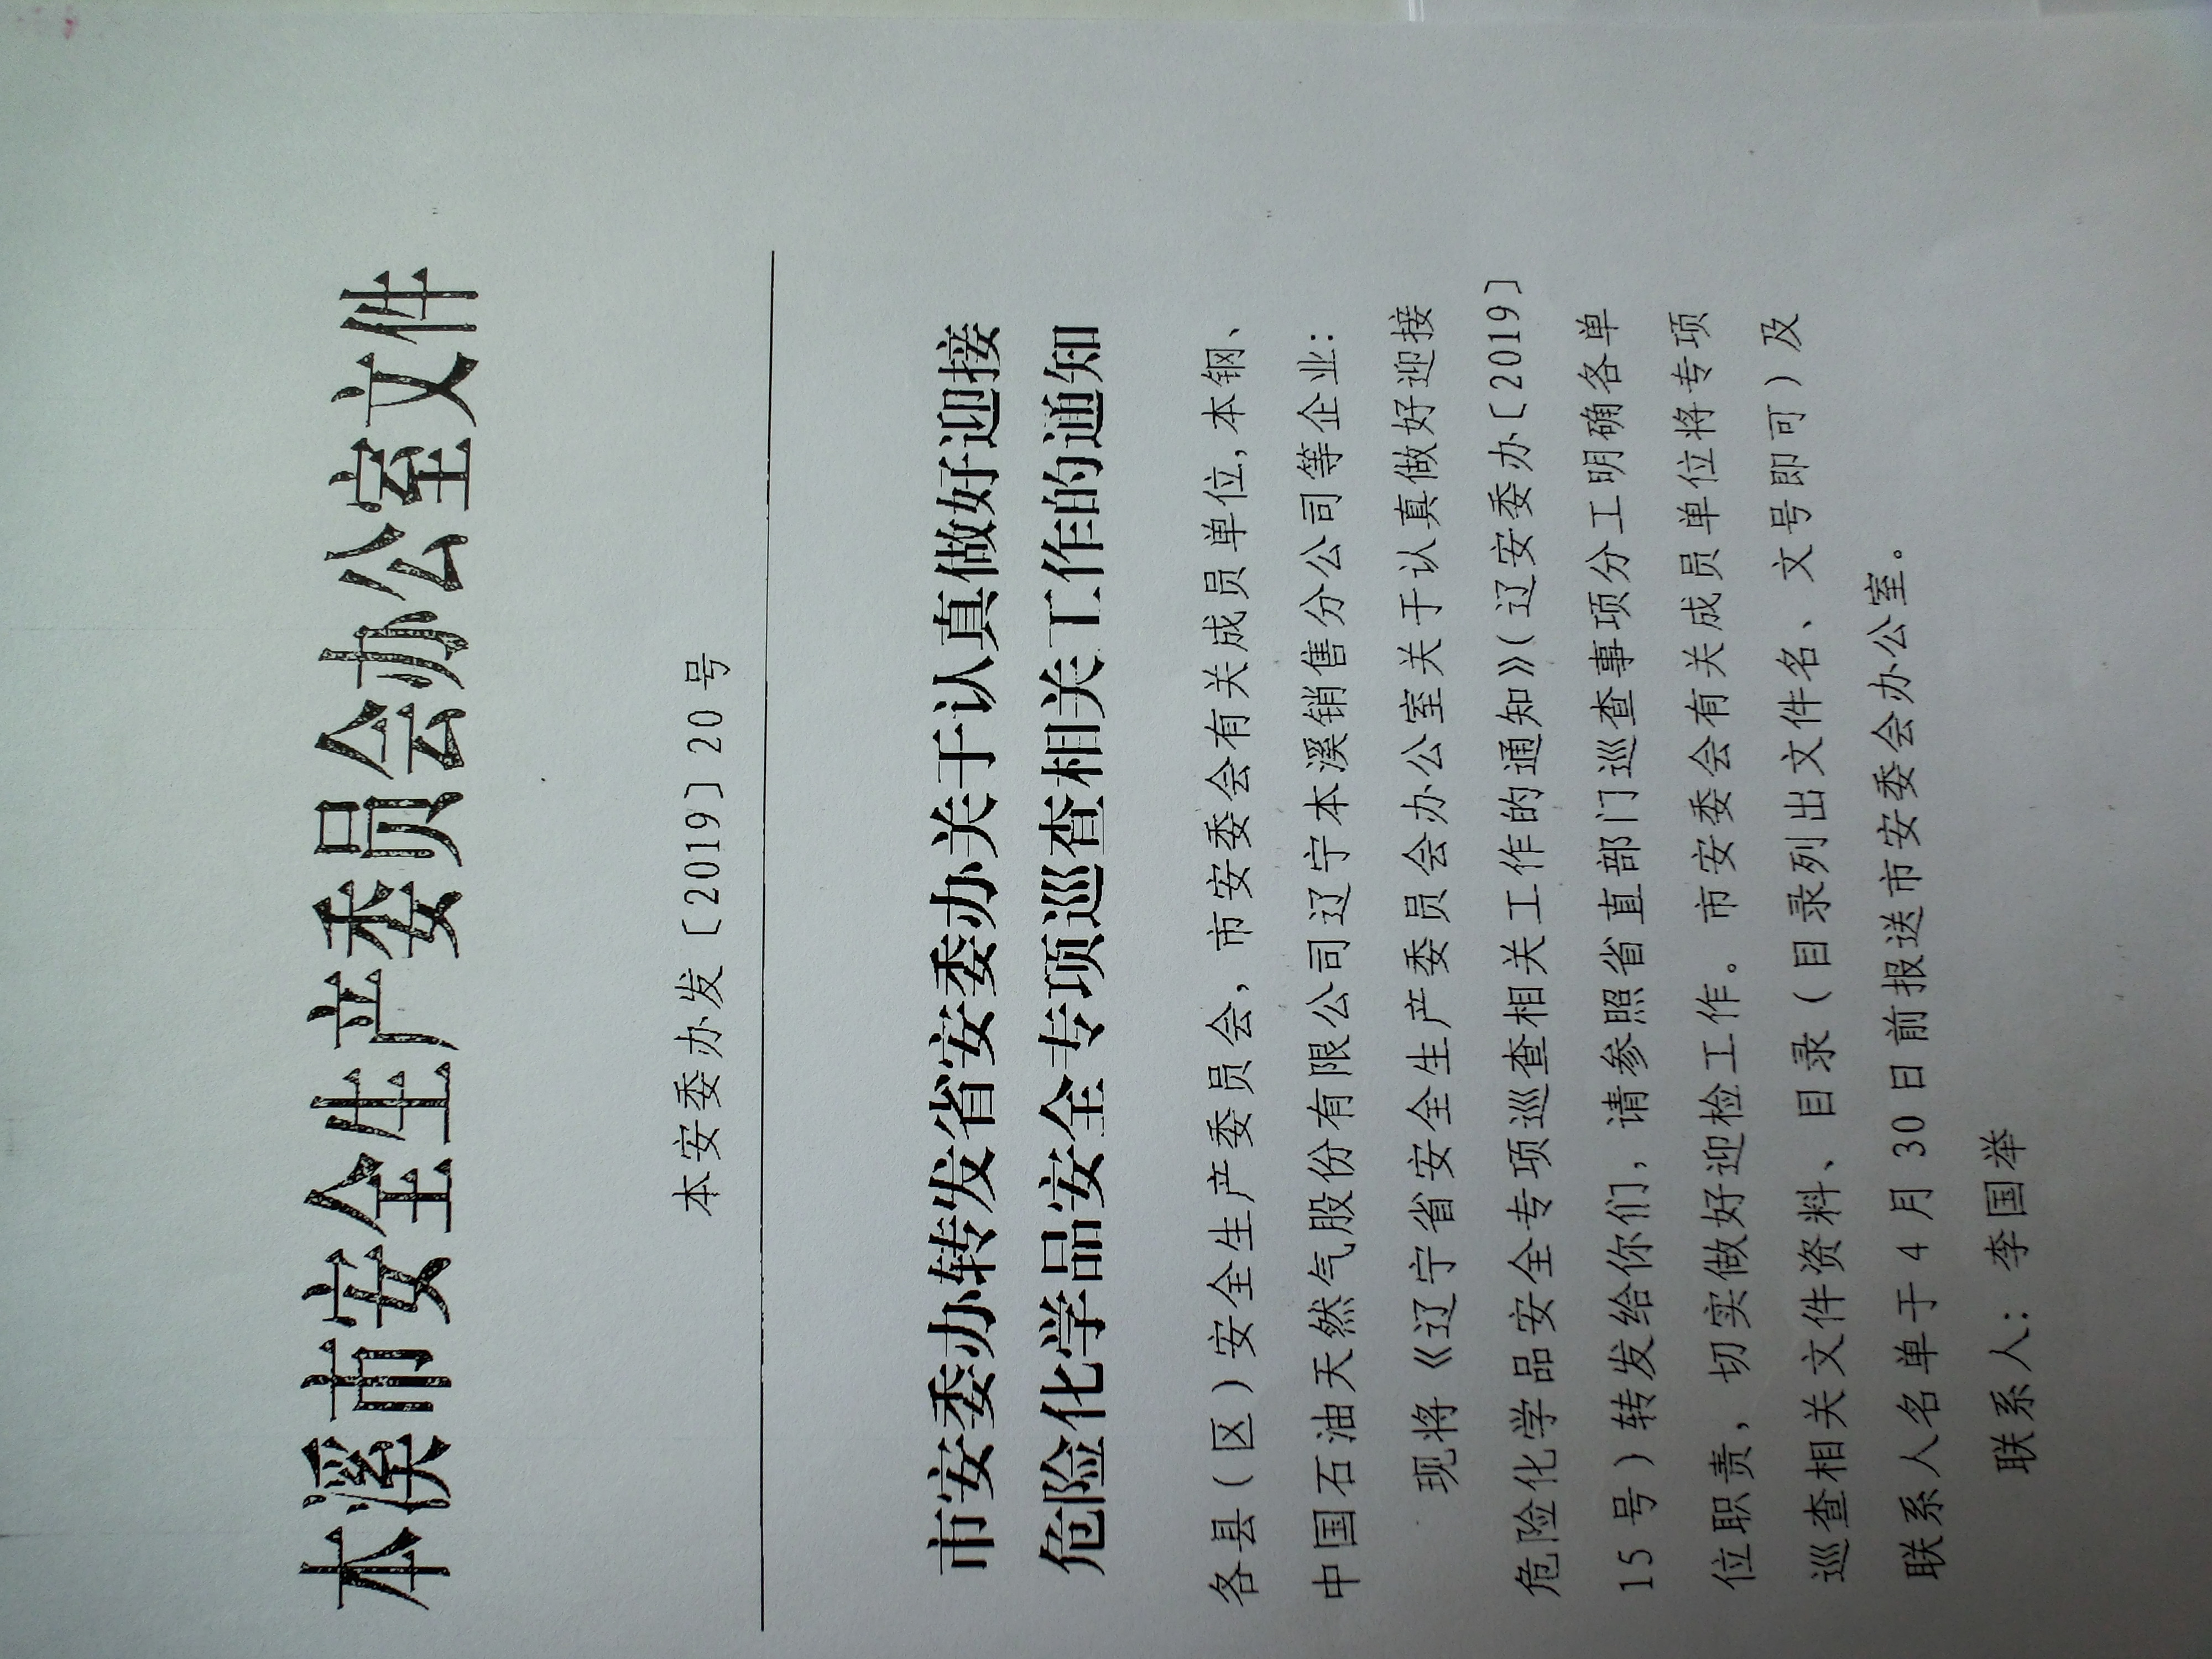 本溪市安全生产委员会办公室文件
本安委办发〔2019〕20号
市安委办转发省安委办关于认真做好迎接
危险化学品安全专项巡查相关工作的通知
各县（区）安全生产委员会，市安委会有关成员单位,本钢、
中国石油天然气股份有限公司辽宁本溪销售分公司等企业：
现将《辽宁省安全生产委员会办公室关于认真做好迎接
危险化学品安全专项巡查相关工作的通知》（辽安委办〔2019〕
15号）转发给你们，请参照省直部门巡查事项分工明确各单
位职责，切实做好迎检工作。市安委会有关成员单位将专项
巡查相关文件资料、目录（目录列出文件名、文号即可）及
联系人名单于4月30日前报送市安委会办公室。
联系人：李国举